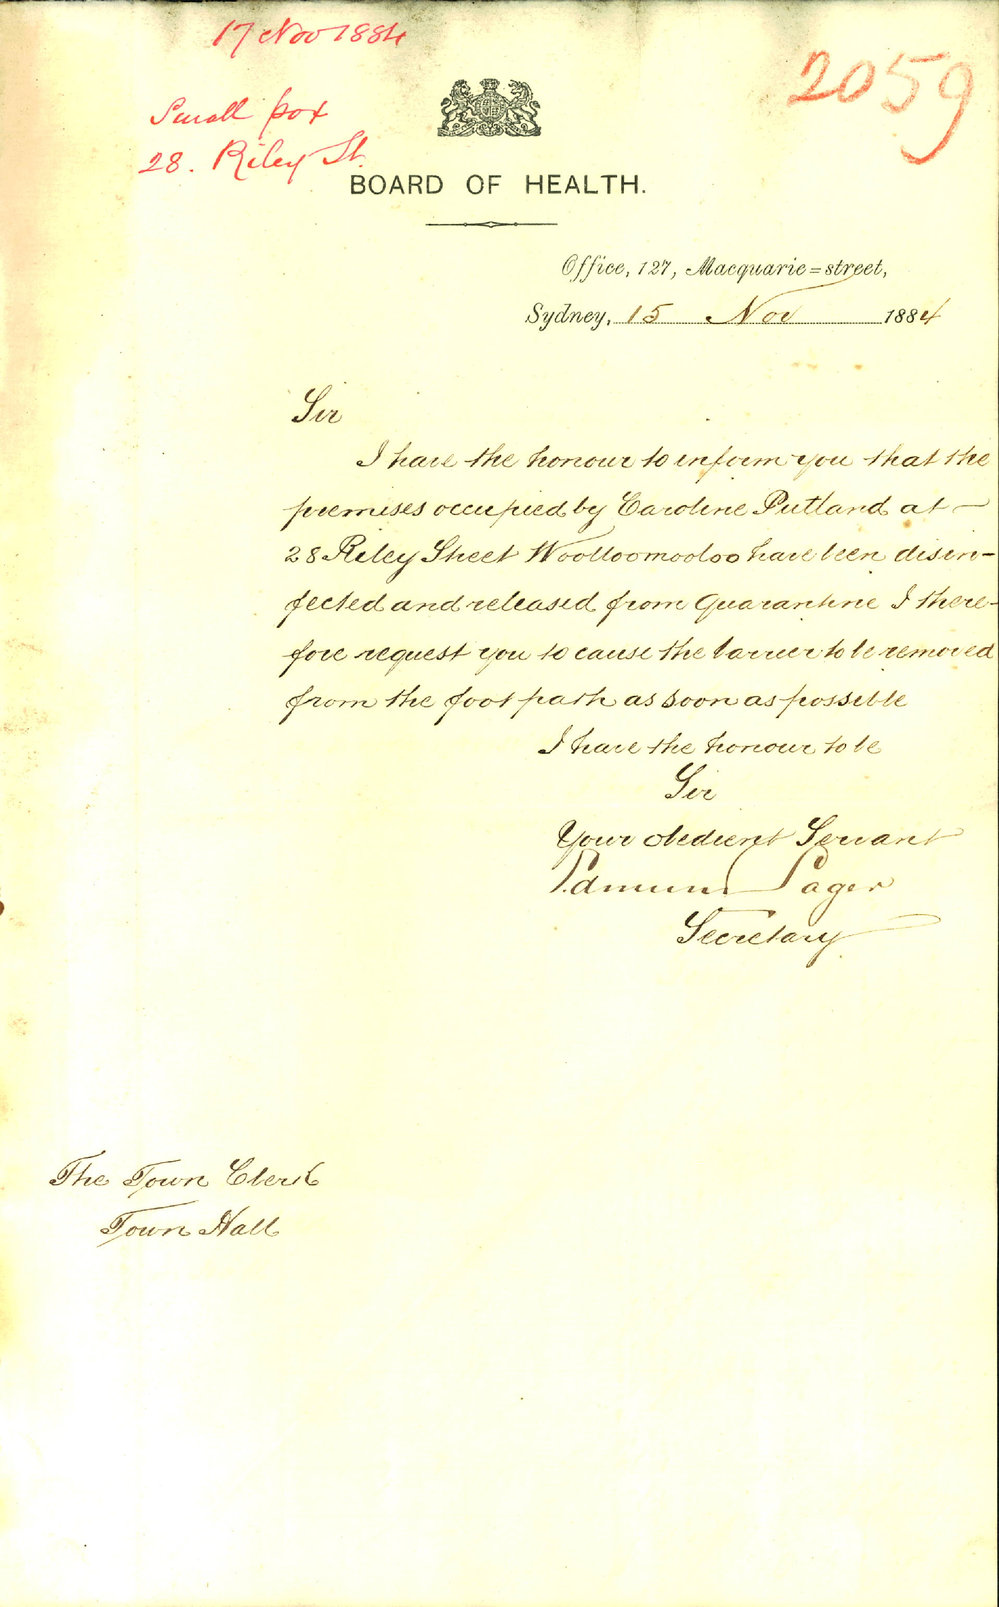 17 Nov 1884
2059
Small pox
28. Riley St.
BOARD OF HEALTH.
Office, 127, Macquarie=street,
Sydney, 15 Nov 1884
Sir
I have the honour to inform you that the
premises occupied by Caroline Putland at
28 Riley Street Woolloomooloo have been disin-
fected and released from Quarantine I there-
fore request you to cause the barrier to be removed
from the foot path as soon as possible
I have the honour to be
Sir
Your obedient Servant
Edmund Sager
Secretary
The Town Clerk
Town Hall